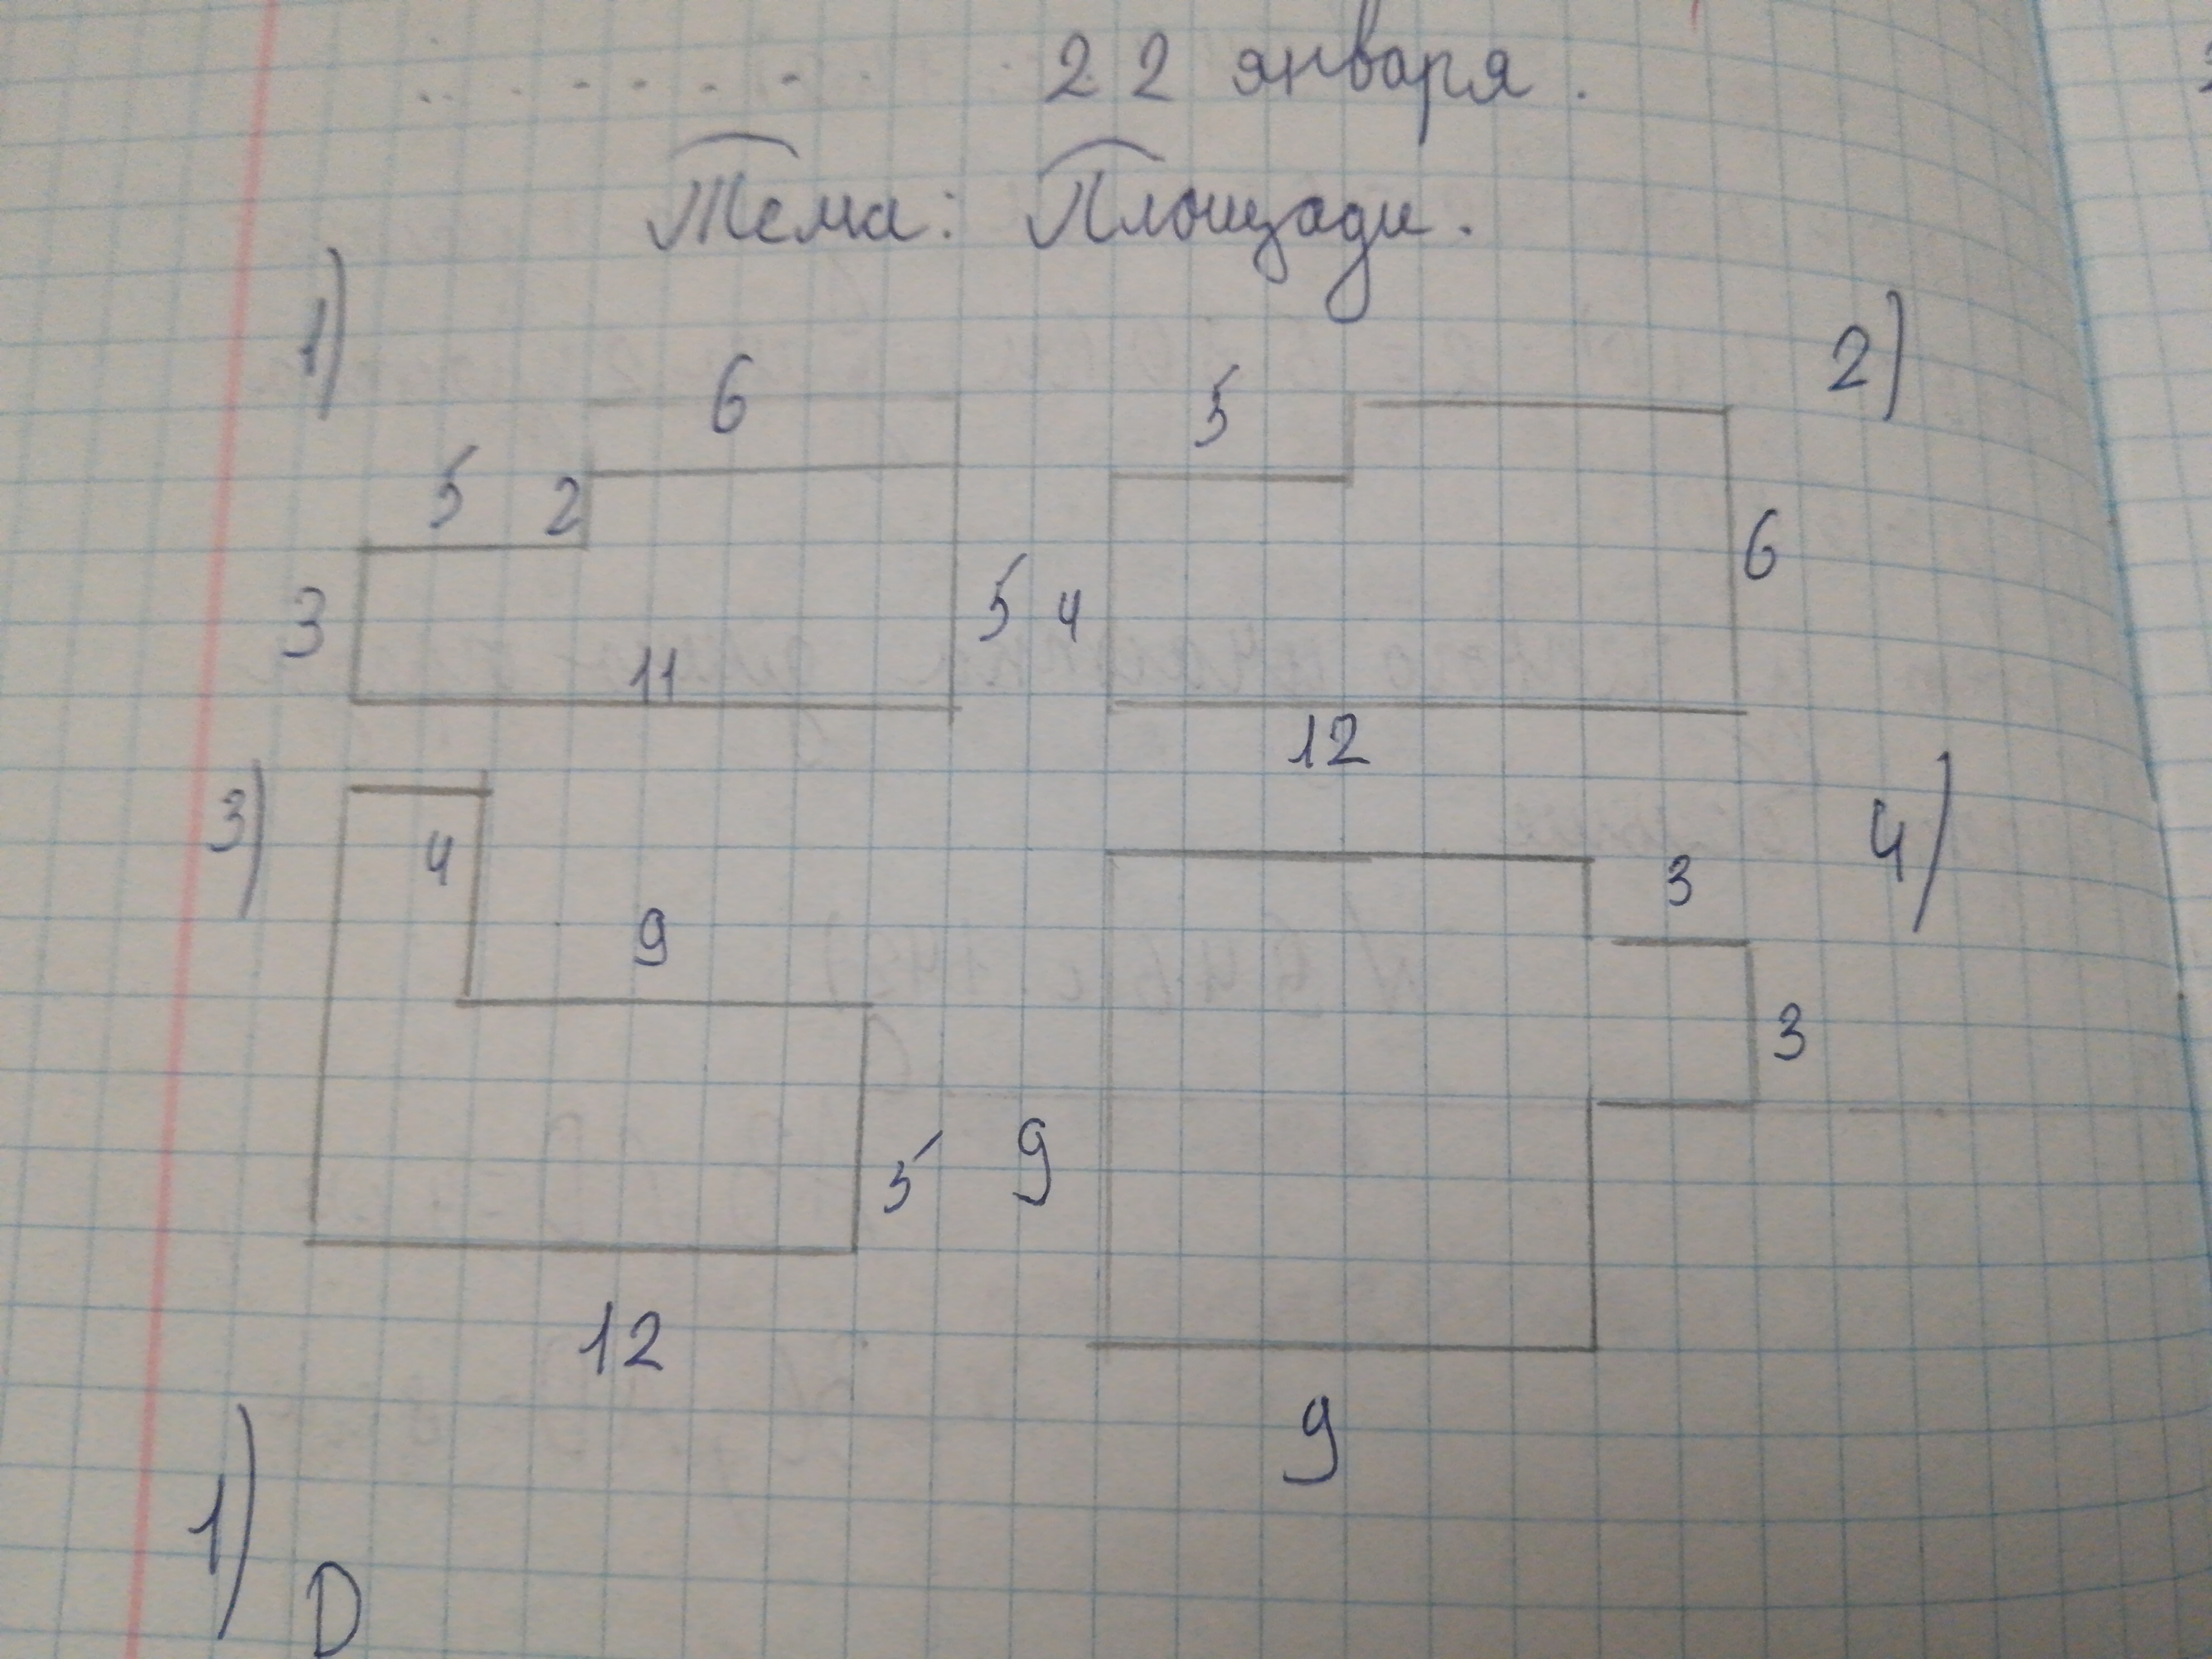 22 января.
Тема: Площади.
1) 2)
6 5
5 2
3 11 5 4 6
12
3) 4)
4 9 3
3
5 9
12
9
1) D